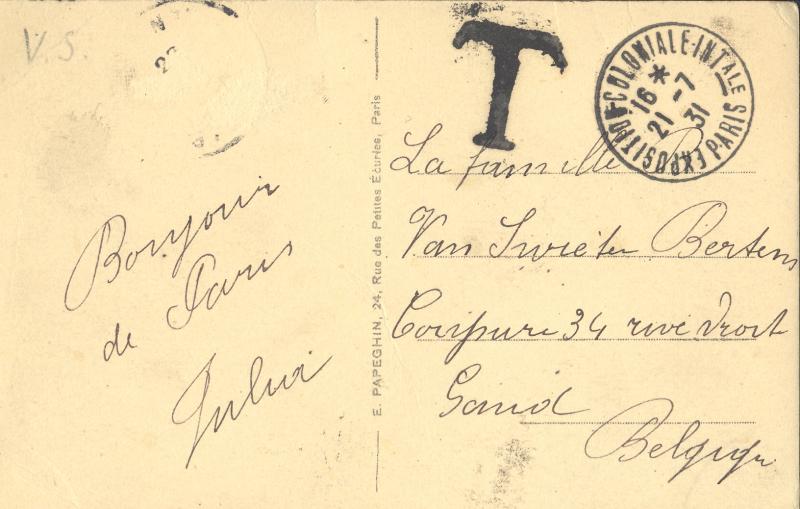 V.S.
T
EXPOSITION COLONIALE INTALE PARIS
16 *
21 -7
31
Bonjour
de Paris
Julia
E. PAPEGHIN, 24, Rue des Petites Écuries, Paris
La famille
Van Swieten Bertens
Coupure 34 rive droit
Gand
Belgique